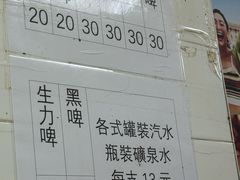 啤
20 20 30 30 30 30
黑啤
生力啤
各式罐裝汽水
瓶裝礦泉水
每支 13 元